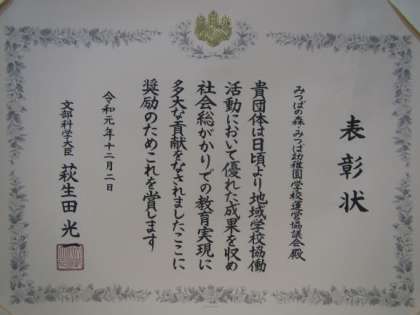 表彰状
みつばの森・みつば幼稚園学校運営協議会殿
貴団体は日頃より地域学校協働
活動において優れた成果を収め
社会総がかりでの教育実現に
多大な貢献をなされましたここに
奨励のためこれを賞します
令和元年十二月二日
文部科学大臣 萩生田光一